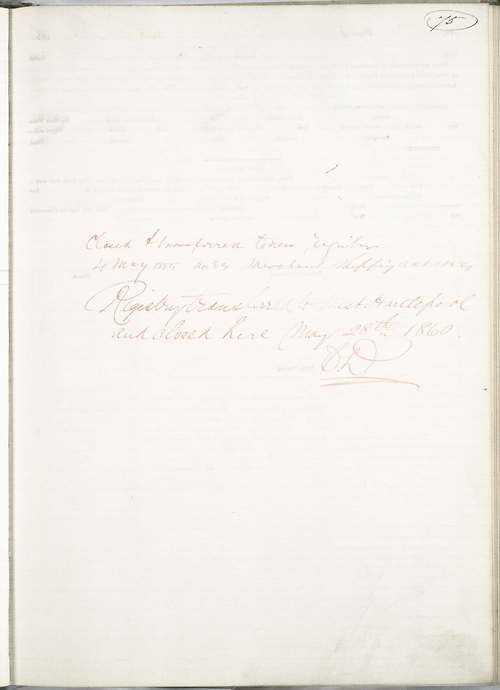 75
Closed & transferred to new Register
4 May 1855 under Merchant Shipping act 1854
Registry transferred to West Hartlepool
and closed here May 28th 1860.